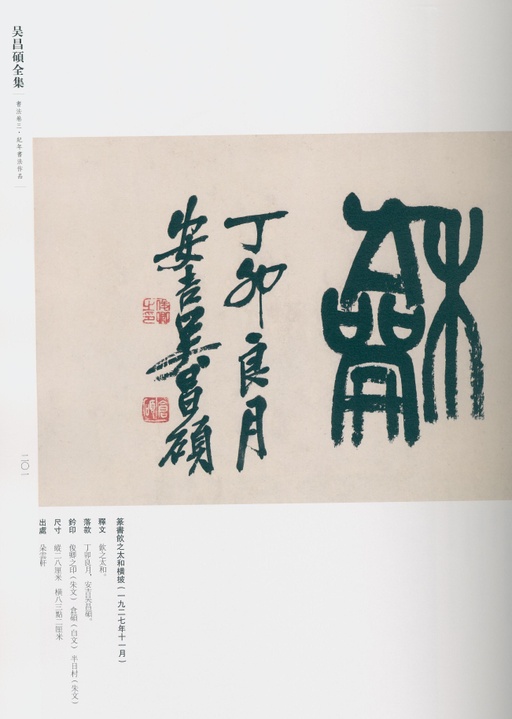 吴昌碩全集
書法卷三·紀年書法作品
二〇一
龢
丁卯良月
安吉吴昌碩
俊卿之印
倉碩
篆書飲之太和橫披(一九二七年十一月)
釋文 飲之太和。
落款 丁卯良月,安吉吴昌碩。
鈐印 俊卿之印(朱文) 倉碩(白文) 半日村(朱文)
尺寸 縱二八厘米 橫八三點二厘米
出處 朵雲軒